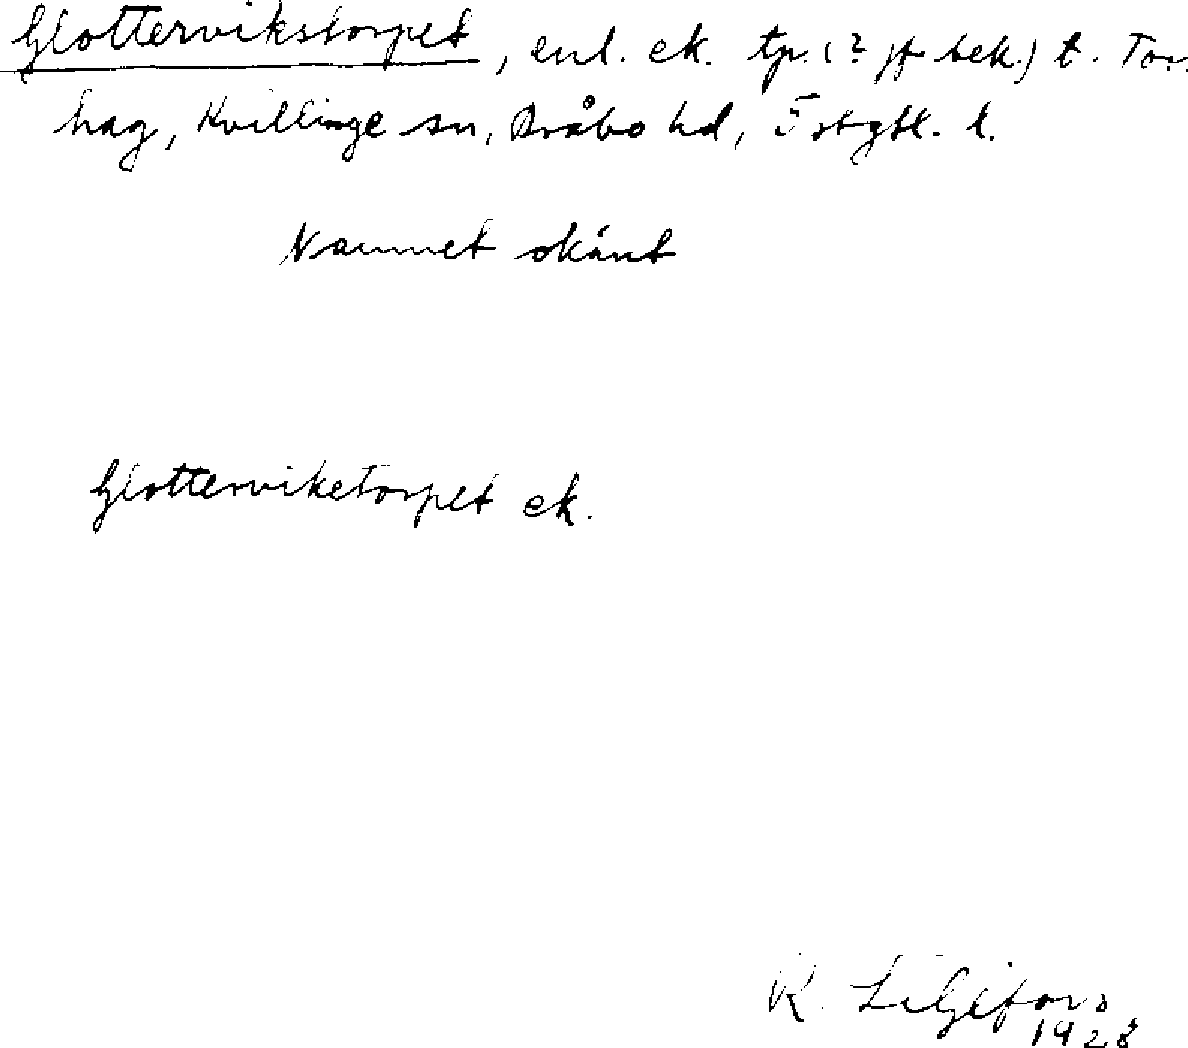 Glottervikstorpet, enl. ek. tp. (? jf bek.) t. Tor-
hag, Kvillinge sn, Bråbo hd, Östgtl. l.
Namnet okänt
Glotterviketorpet ek.
K. Liljefors
1928